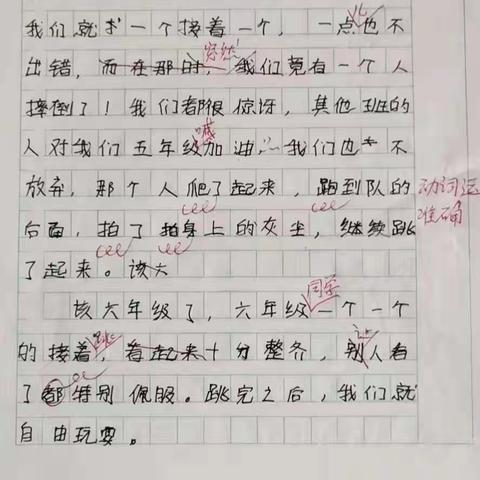 我们就扌一个接着一个，一点也不
出错，而在那时，突然我们竟有一个人
摔倒了！我们都很惊讶，其他班的
人对我们五年级喊加油，我们也不
放弃，那个人爬了起来，跑到队的
后面，拍了拍身上的灰尘，继续跳
了起来。该六
动词运
准确
该六年级了，六年级同学一个一个
的接着跳，看起来十分整齐，别人看
了都特别佩服。跳完之后，我们就
自由玩耍。